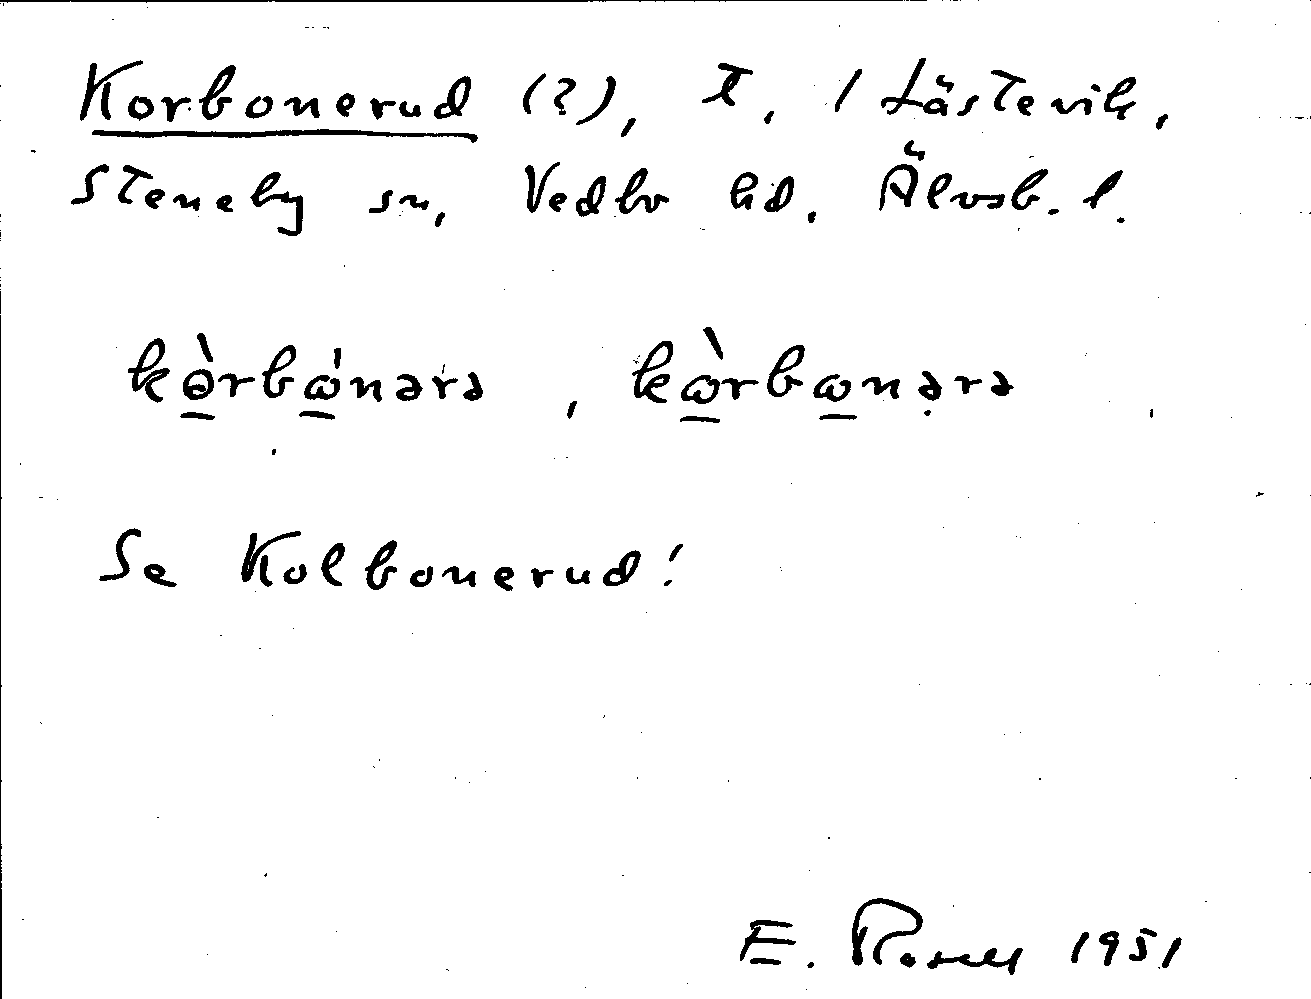 Korbonerud (?), t. / Låstevik,
Steneby sn, Vedbo hd. Älvsb. l.
kɵ̠̀rbώ̠nərə, kὼ̠rbω̠nə̣rə
Se Kolbonerud!
E. Rosell 1951